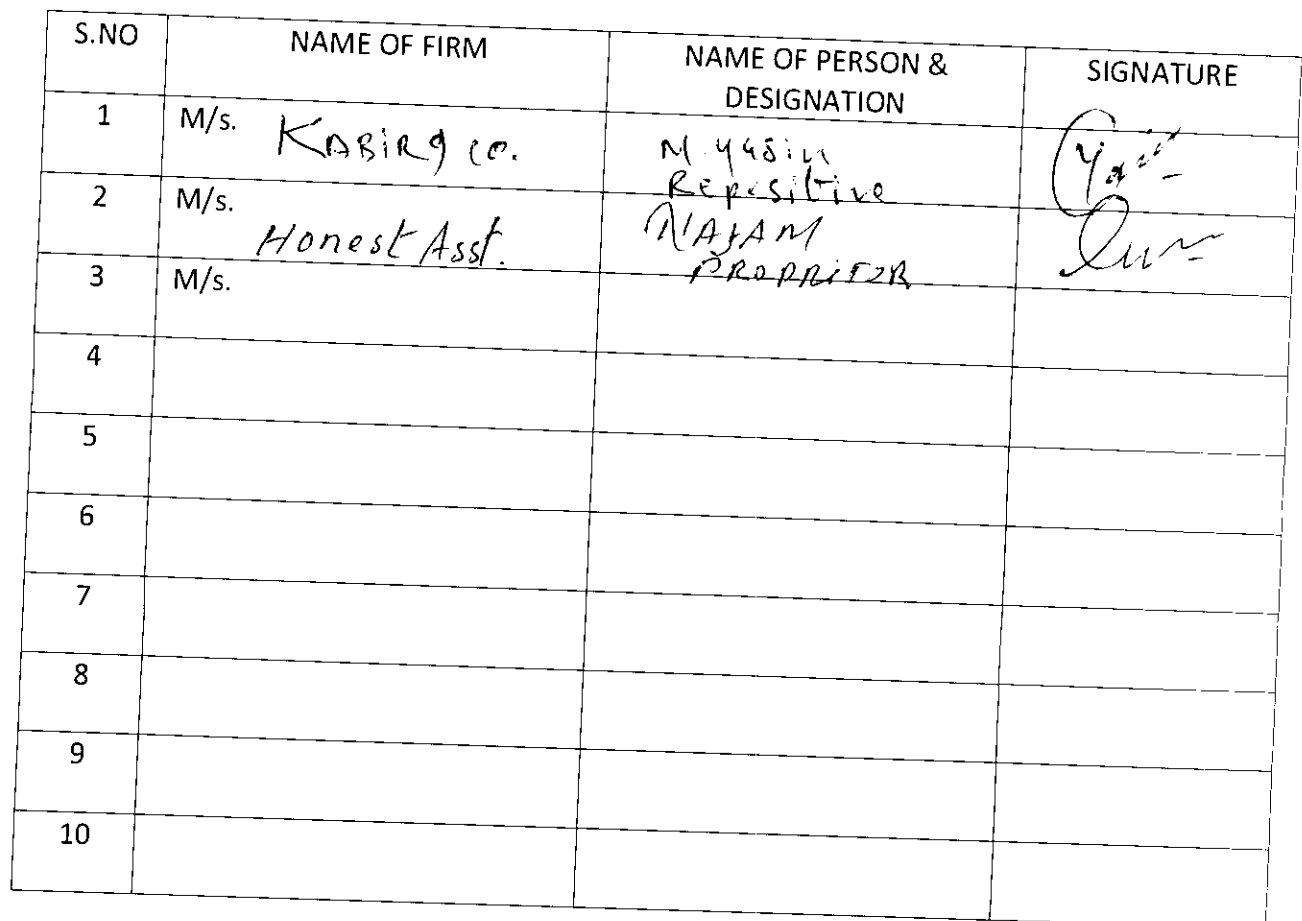 S.NO NAME OF FIRM NAME OF PERSON & DESIGNATION SIGNATURE
1 M/s. KABIR & CO. M. YASin
Repisitive
2 M/s. Honest Asst. NAJAM
PROPRITER
3 M/s.
4
5
6
7
8
9
10